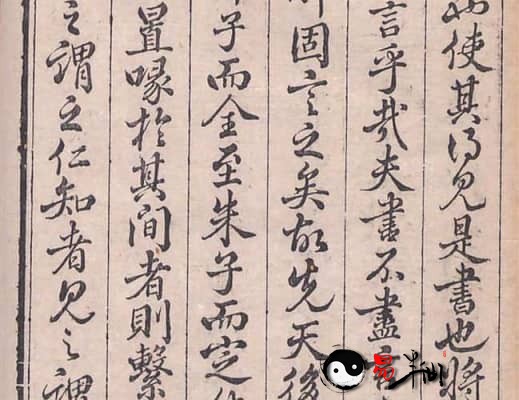 使其得見是書也將
言乎哉夫書不盡言
固言之矣故先天後
子而全至朱子而定
置喙於其間者則繫
之謂之仁知者見之謂